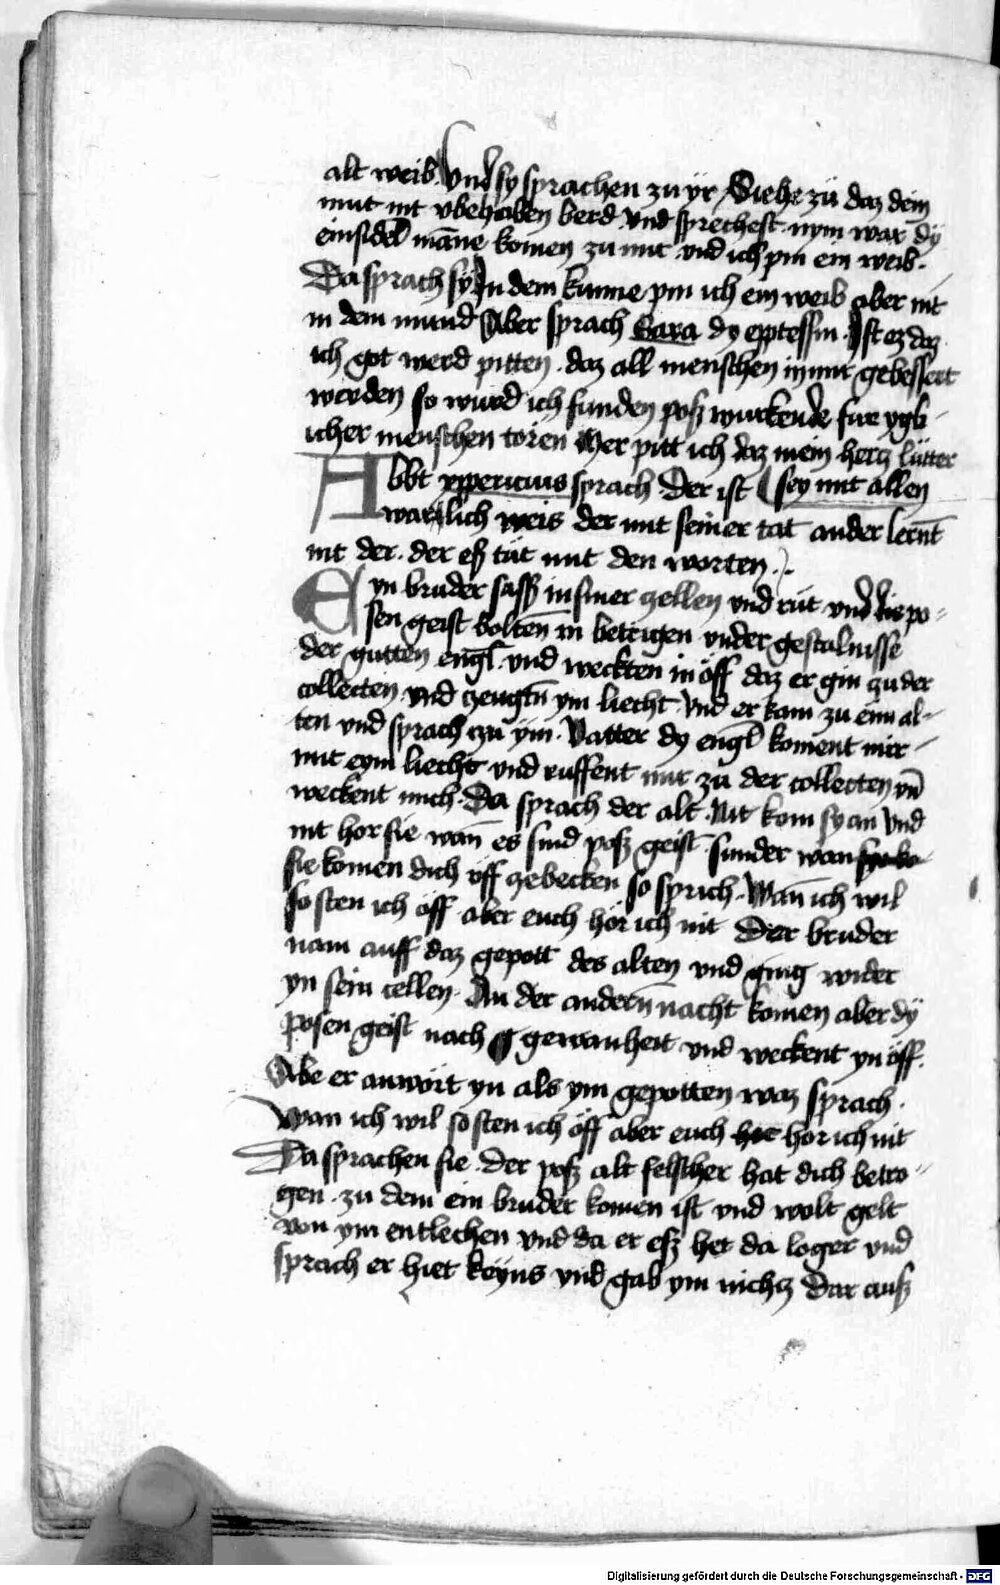 alt weib Vnd sy sprachen zu yr Siehe zü daz dein
mut nit vbehaben berd vnd sprechest nym war dy
einsidel mane komen zu mir vnd ich pin ein weib
Da sprach sy In dem kunne pin ich ein weib aber nit
in dem mund Aber sprach Sara dy epptessin Ist ez daz
ich got werd pitten daz all menschen in mir gebessert
werden so wurd ich funden posz wurckende fur ygk-
licher menschen toren Mer pitt ich daz mein hertz lütter
Abbt yppericius sprach Der ist sey mit allen
warlich weis der mit seiner tat ander lernt
nit der der esz tüt mit den worten
Eyn bruder sasz in siner zellen vnd rüt vnd die po-
sen geist bolten in betrigen vnder gestalnisse
der gutten engl vnd weckten in öff daz er gin zu der
collecten vnd zeugtn ym liecht Vnd er kam zu eim al-
ten vnd sprach zu ym Vatter dy engl koment mir
mit eym liecht vnd ruffent mir zu der collecten vn̄
weckent mich Da sprach der alt Nit kom sy an Vnd
nit hor sie wan̄ es sind posz geist sunder wan
sie komen dich öff zebecken so sprich Wan̄ ich wil
so sten ich öff aber euch hör ich nit Der bruder
nam auff daz gepott des alten vnd ging wider
yn sein cellen An der andern nacht komen aber dy
posen geist nach gewanheit vnd weckent yn öff
Abe er anwort yn als ym gepotten waz sprach
Wan ich wil so sten ich öff aber euch hor ich nit
Da sprachen sie der posz alt felscher hat dich betro-
gen zu dem ein bruder komen ist vnd wolt gelt
von ym entlechen vnd da er esz het da loger vnd
sprach er hiet keyns vnd gab ym nichtz Dar ausz
Digitalisierung gefördert durch die Deutsche Forschungsgemeinschaft - DFG